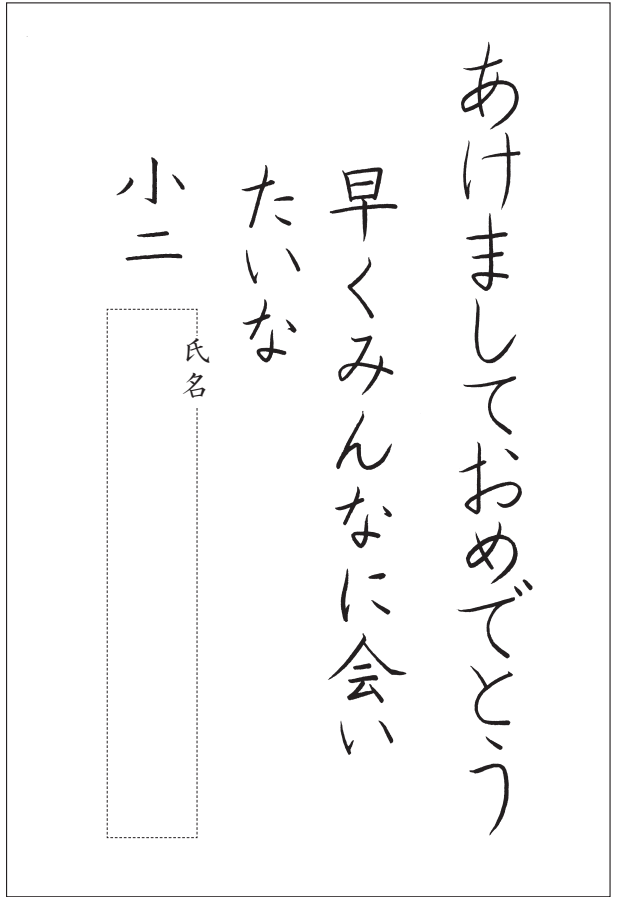 あけましておめでとう
早くみんなに会い
たいな
小二
氏名